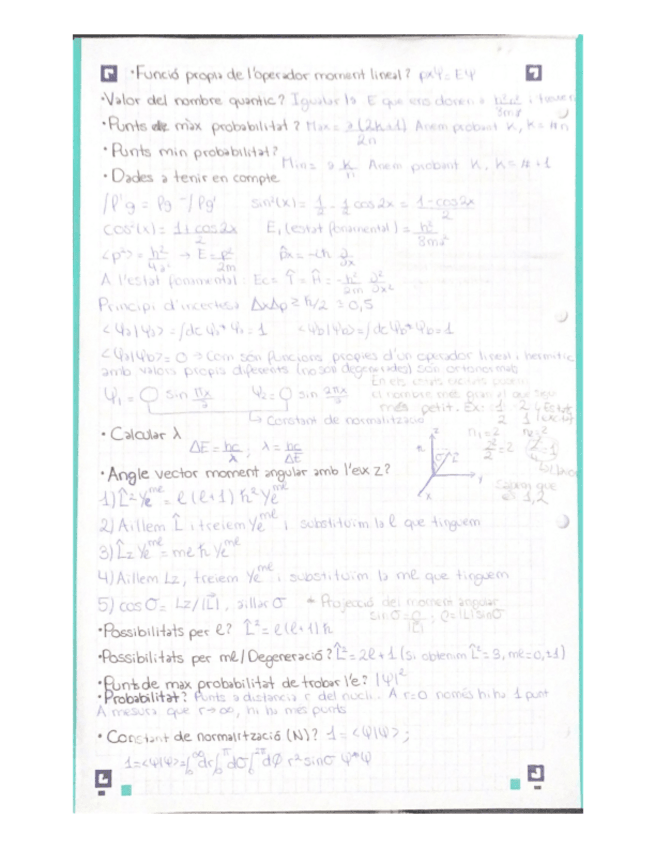 • Funció propia de l'operador moment lineal? pxΨ = EΨ
• Valor del nombre quantic? Igualar la E que ens donen a h²n²/8ma² i
• Punts de màx probabilitat? Max = a(2k+1)/2n Anem probant K,
• Punts min probabilitat?
Min = a K/n Anem probant K,
• Dades a tenir en compte
sin²(x) = 1/2 - 1/2 cos 2x = 1-cos2x/2
cos²(x) = 1+cos2x/2 E1 (estat fonamental) = h²/8ma²
<p²> = h²/4a² → E = p²/2m p̂x = -iħ ∂/∂x
A l'estat fonamental: Ec = T̂ = Ĥ = -ħ²/2m ∂²/∂x²
Principi d'incertesa ΔxΔp ≥ ħ/2 ≥ 0,5
<Ψa|Ψa> = ∫dτ Ψa* Ψa = 1 <Ψb|Ψb> = ∫dτ Ψb* Ψb = 1
<Ψa|Ψb> = 0 → com són funcions propies d'un operador lineal i hermitic
amb valors propis diferents (no són degenerades) són ortonormals
Ψ1 = O sin πx/a Ψ2 = O sin 2πx/a
→ Constant de normalització
• Calcular λ
ΔE = hc/λ ; λ = hc/ΔE
• Angle vector moment angular amb l'eix z?
1) L̂² Yℓ^mℓ = ℓ(ℓ+1) ħ² Yℓ^mℓ
2) Aïllem L̂ i treiem Yℓ^mℓ i substituïm la ℓ que tinguem
3) L̂z Yℓ^mℓ = mℓ ħ Yℓ^mℓ
4) Aïllem Lz, treiem Yℓ^mℓ i substituïm la mℓ que tinguem
5) cos σ = Lz/|L|, aïllar σ * Projecció del moment angular
• Possibilitats per ℓ? L̂² = ℓ(ℓ+1)ħ
• Possibilitats per mℓ/Degeneració? L̂² = 2ℓ+1 (si obtenim L̂² = 3, mℓ = 0, ±1)
• Punts de max probabilitat de trobar l'e? |Ψ|²
• Probabilitat? Punts a distancia r del nucli. A r=0 només hi ha 1 punt
A mesura que r→∞, hi ha més punts
• Constant de normalització (N)? 1 = <Ψ|Ψ> ;
1 = <Ψ|Ψ> = ∫₀^∞ dr ∫₀^π dσ ∫₀^2π dφ r² sin σ Ψ*Ψ